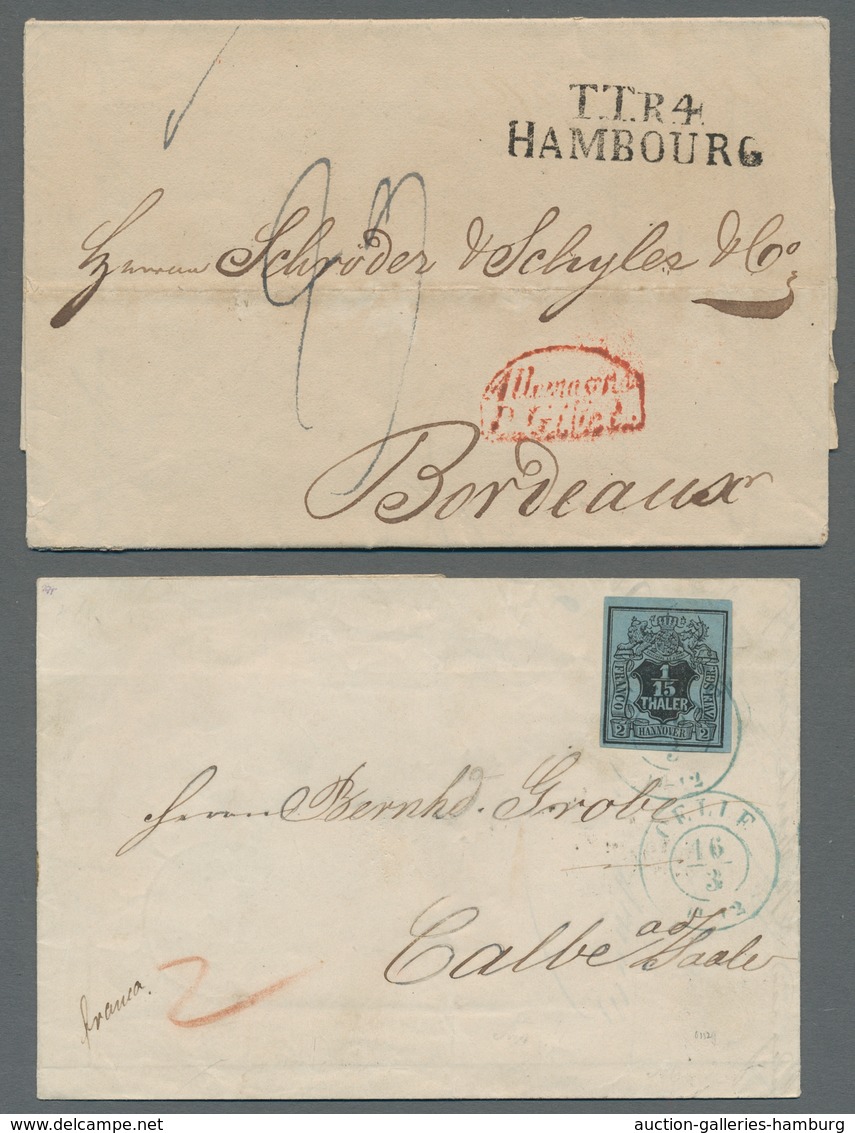 T.T.R.4.
HAMBOURG
Schröder & Schyler & Co
Allemagne
P. Givet.
Bordeaux
FRANCO
1/15
THALER
2 HANNOVER 2
Herrn Bernhd. Grobe
CELLE
16
3
Calbe a/d Saale
franco.
2
auction-galleries-hamburg